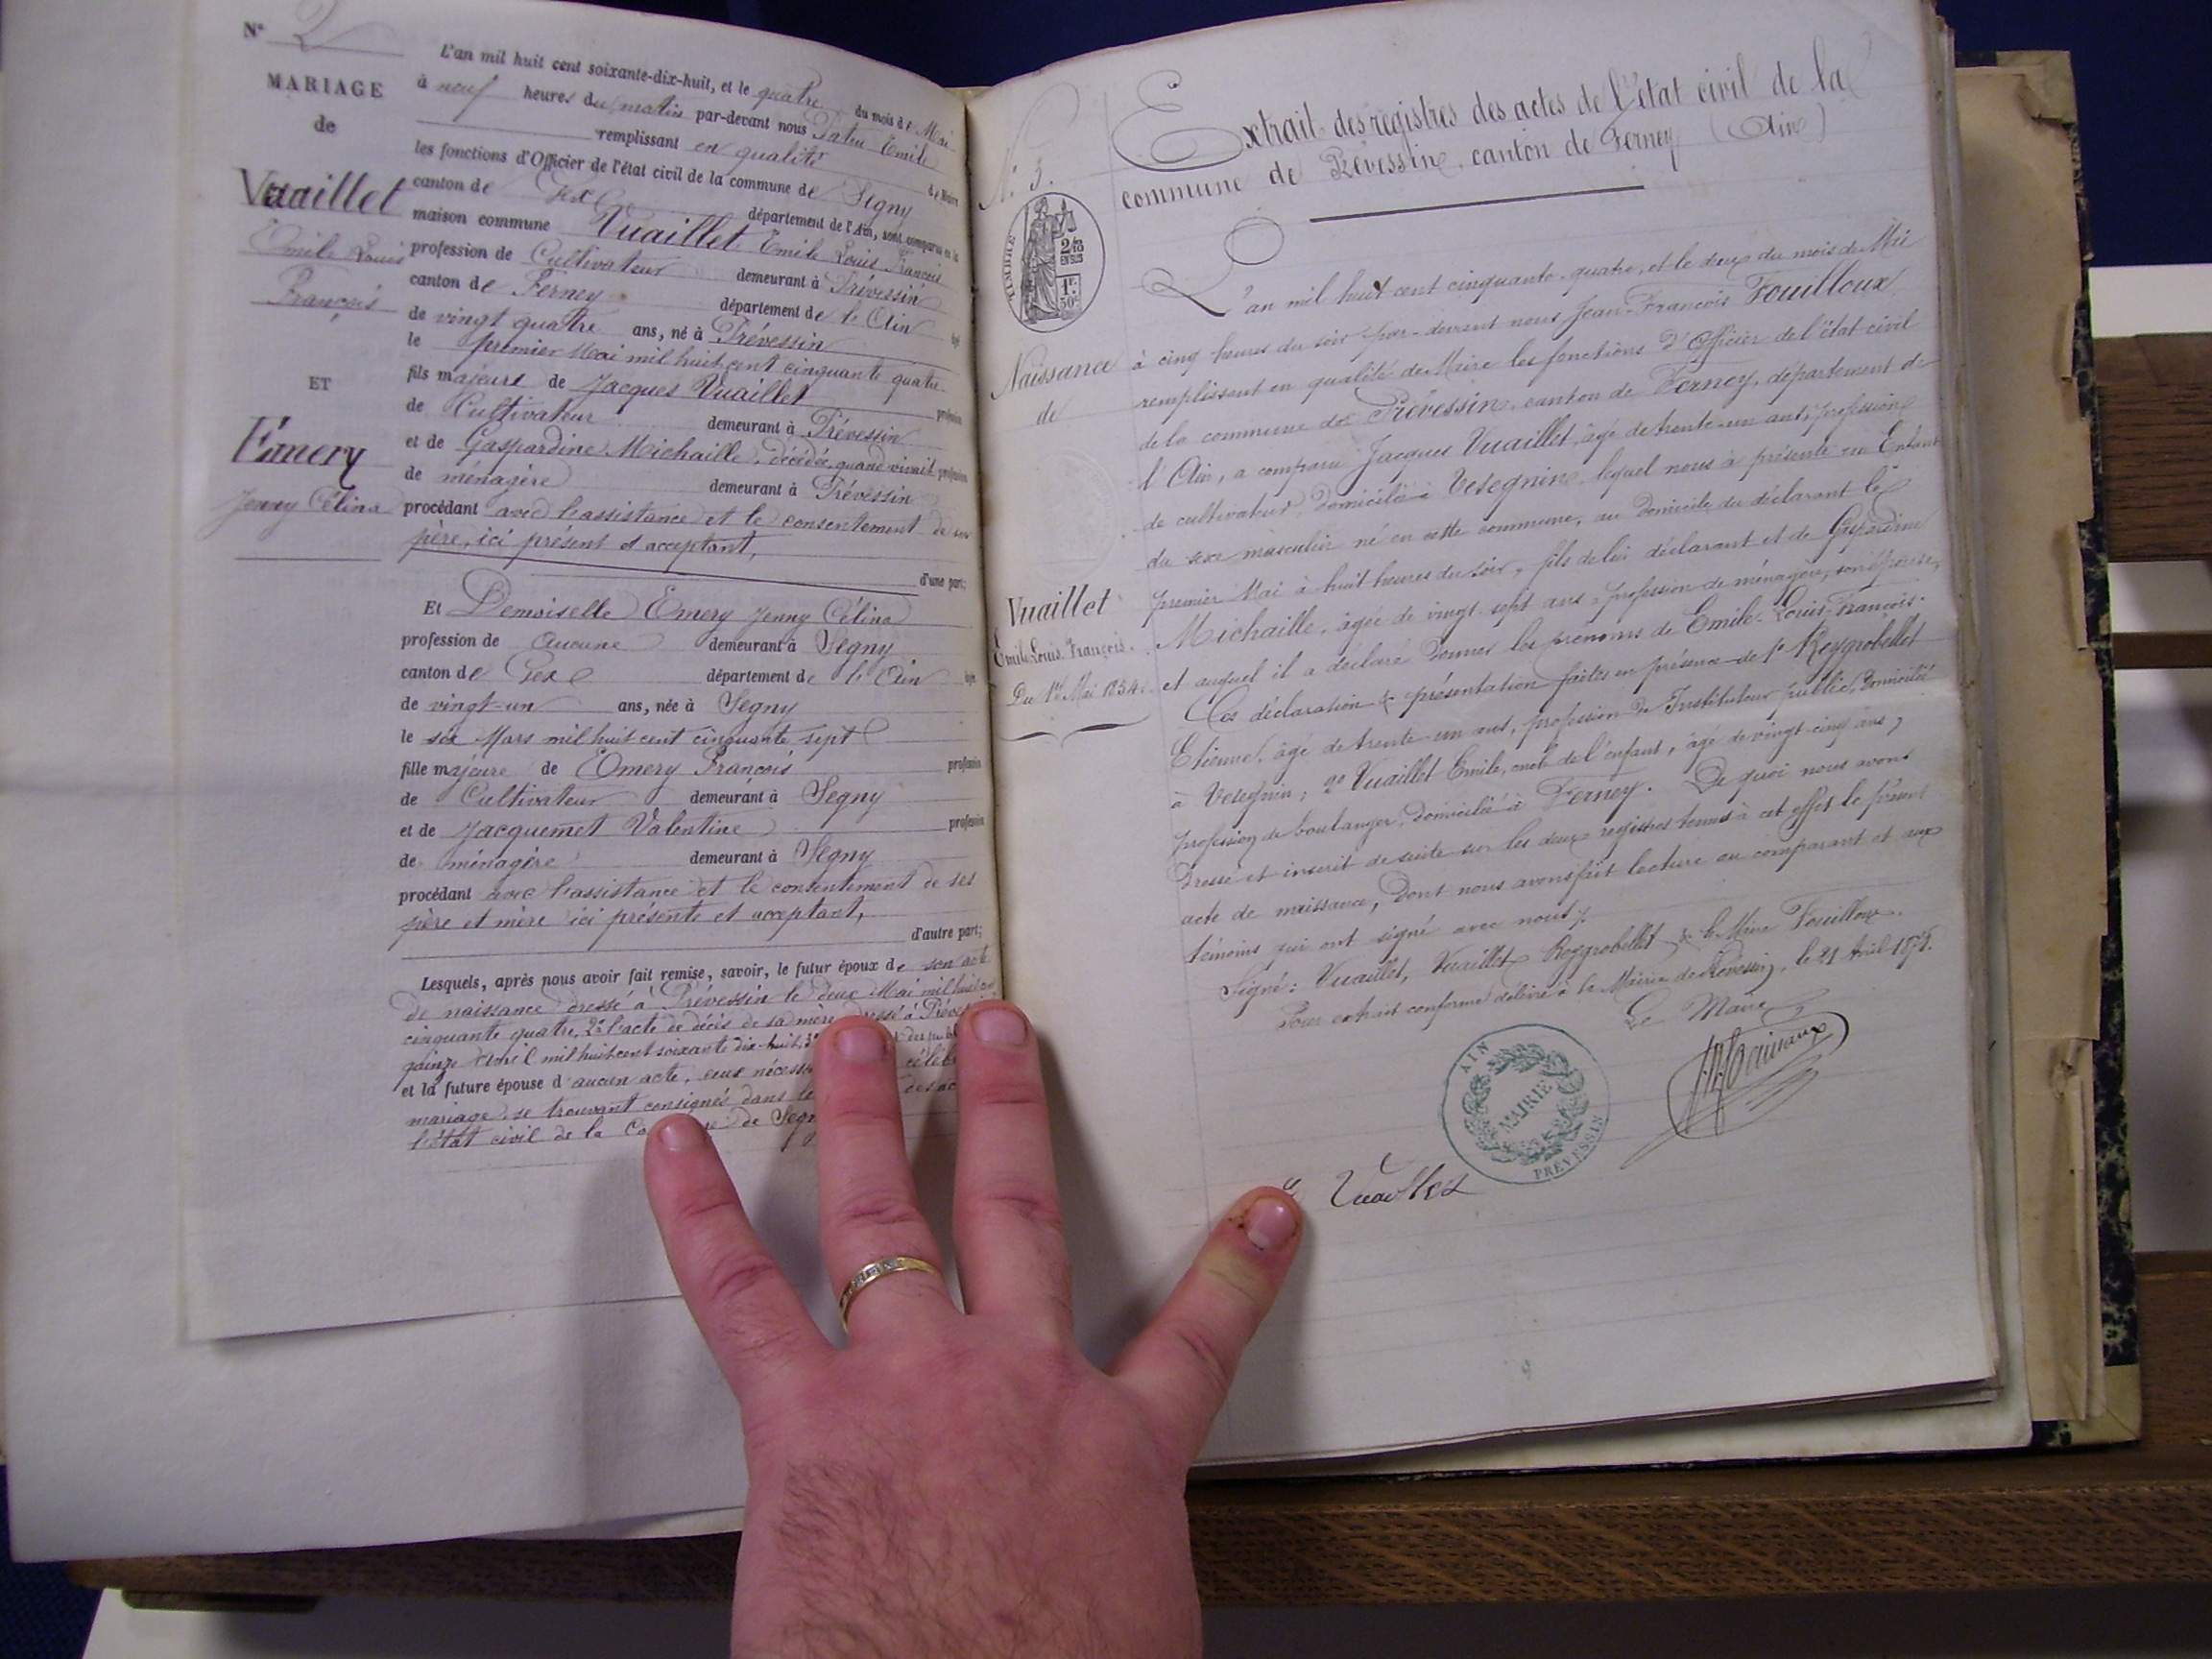 N° 2
MARIAGE
de
Vuaillet
Emile Louis
François
ET
Émery
Jenny Célina
L'an mil huit cent soixante-dix-huit, et le quatre du mois de Mai
à neuf heures du matin par-devant nous Patu Emile
remplissant en qualité de Maire
les fonctions d'Officier de l'état civil de la commune de Segny
canton de Gex département de l'Ain, sont comparus en la
maison commune Vuaillet Emile Louis François
profession de Cultivateur demeurant à Prévessin
canton de Ferney département de l'Ain âgé
de vingt quatre ans, né à Prévessin
le premier Mai mil huit cent cinquante quatre
fils majeur de Jacques Vuaillet profession
de Cultivateur demeurant à Prévessin
et de Gaspardine Michaille, décédée, quand vivait profession
de ménagère demeurant à Prévessin
procédant avec l'assistance et le consentement de son
père, ici présent et acceptant,
d'une part;
Et Demoiselle Emery Jenny Célina
profession de aucune demeurant à Segny
canton de Gex département de l'Ain âgée
de vingt-un ans, née à Segny
le six Mars mil huit cent cinquante sept
fille majeure de Emery François profession
de Cultivateur demeurant à Segny
et de Jacquemet Valentine profession
de ménagère demeurant à Segny
procédant avec l'assistance et le consentement de ses
père et mère ici présents et acceptant,
d'autre part;
Lesquels, après nous avoir fait remise, savoir, le futur époux de son acte
de naissance dressé à Prévessin le deux Mai mil huit cent
cinquante quatre, 2° l'acte de décès de sa mère dressé à
quinze Avril mil huit cent soixante dix-huit, 3°
et la future épouse d'aucun acte, ceux
mariage se trouvant consignés dans
l'état civil de la de
N° 3.
TIMBRE
2/10
EN SUS
1F.
50C
Extrait des registres des actes de l'état civil de la
commune de Prévessin, canton de Ferney (Ain)
Naissance
de
Vuaillet
Emile Louis François.
Du 1er Mai 1854.
L'an mil huit cent cinquante-quatre, et le deux du mois de Mai
à cinq heures du soir par-devant nous Jean-François Fouilloux
remplissant en qualité de Maire les fonctions d'Officier de l'état-civil
de la commune de Prévessin, canton de Ferney, département de
l'Ain, a comparu Jacques Vuaillet, âgé de trente-un ans, profession
de cultivateur, domicilié à Vesegnin, lequel nous a présenté un Enfant
du sexe masculin né en cette commune, au domicile du déclarant le
premier Mai à huit heures du soir, fils de lui déclarant et de Gaspardine
Michaille, âgée de vingt-sept ans, profession de ménagère, son épouse,
et auquel il a déclaré donner les prénoms de Emile-Louis-François.
Ces déclaration & présentation faites en présence de 1° Reygrobellet
Etienne, âgé de trente-un ans, profession de Instituteur public, domicilié
à Vesegnin; 2° Vuaillet Emile, oncle de l'enfant, âgé de vingt-cinq ans,
profession de boulanger, domicilié à Ferney. De quoi nous avons
dressé et inscrit de suite sur les deux registres tenus à cet effet le présent
acte de naissance, dont nous avons fait lecture au comparant et aux
témoins qui ont signé avec nous.
Signé: Vuaillet, Vuaillet, Reygrobellet & le Maire Fouilloux.
Pour extrait conforme délivré à la Mairie de Prévessin, le 21 Avril 1878.
Le Maire
AIN
MAIRIE
PREVESSIN
Vuaillet